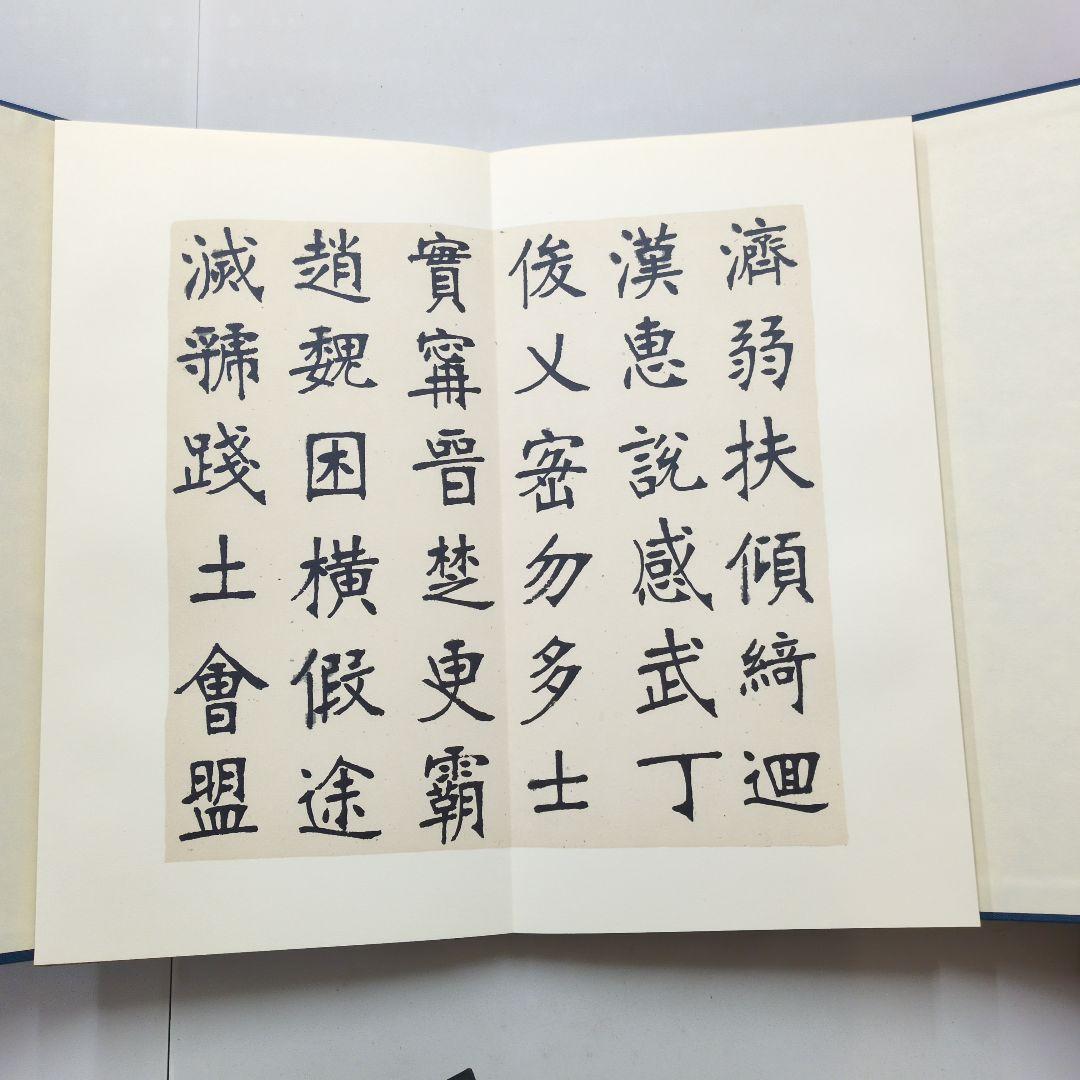 濟弱扶傾綺迴
漢惠說感武丁
俊乂密勿多士
實甯晉楚更霸
趙魏困橫假途
滅虢踐土會盟